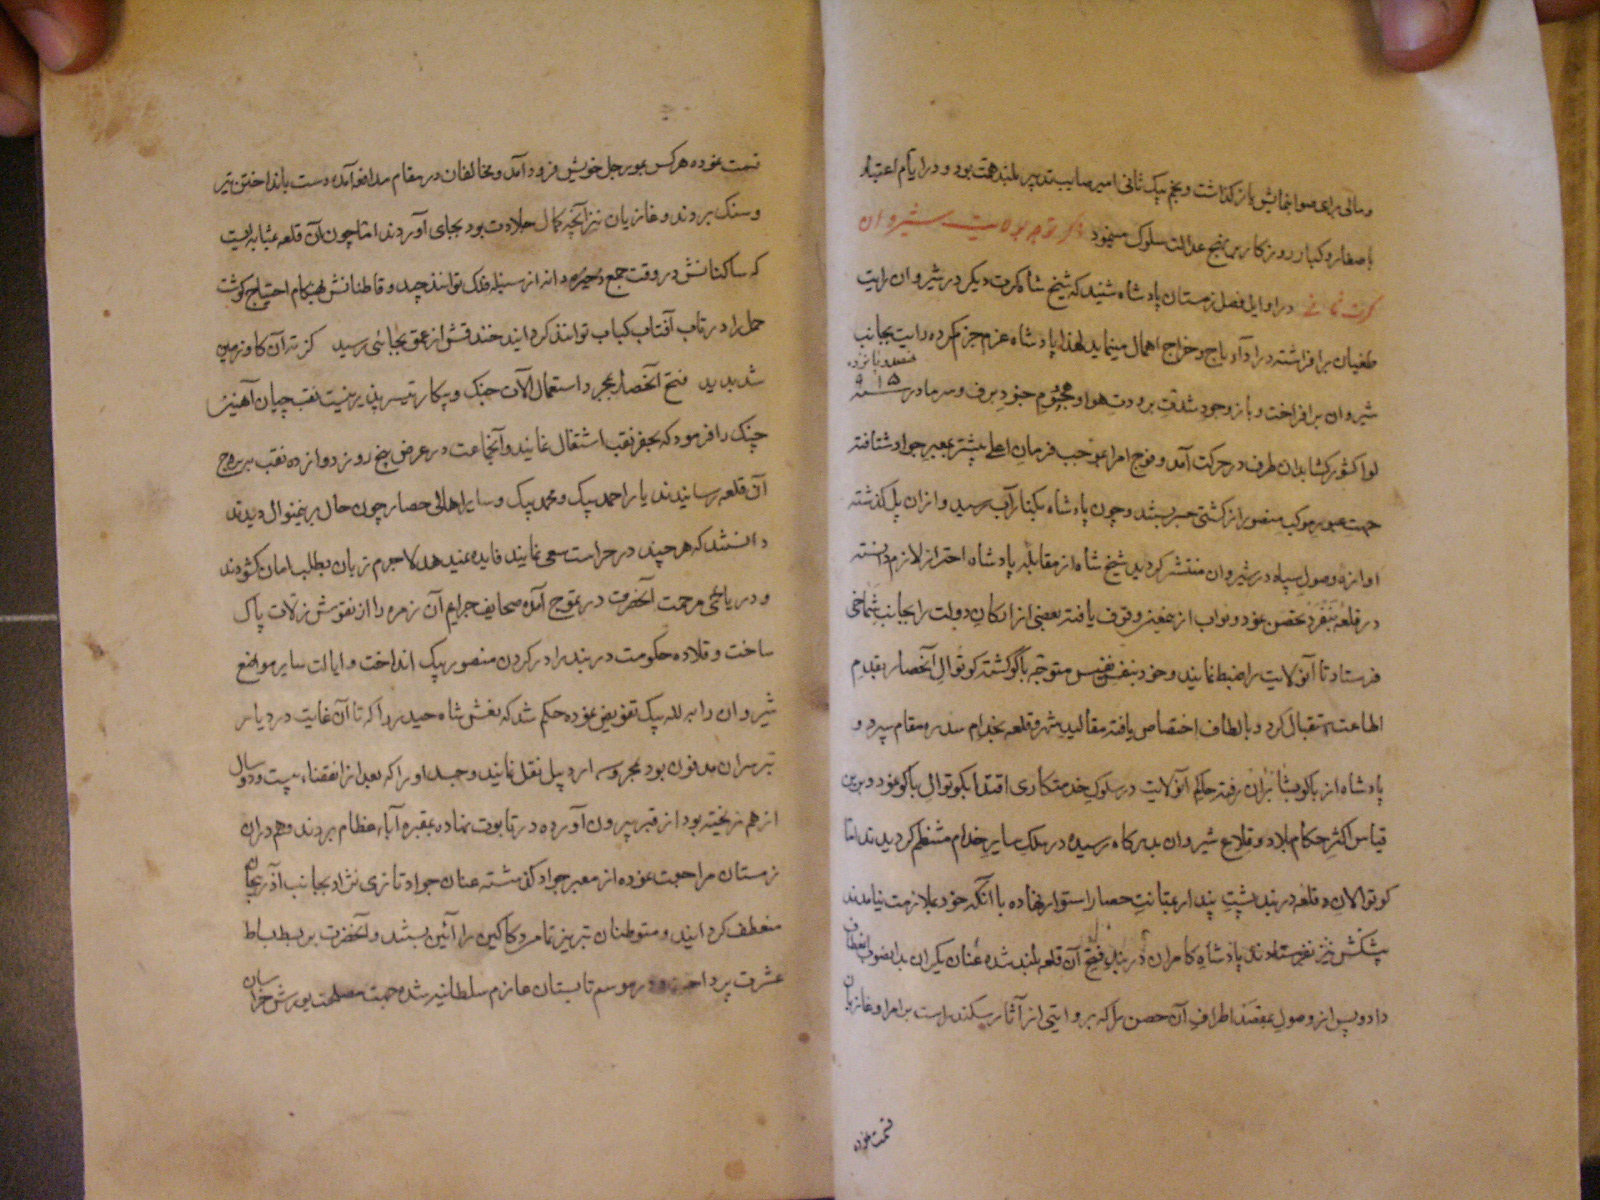 ومانی برای صوابنمایش باز گذاشت و نجم بیک ثانی امیر صایب تدبیر بلند همت بود و در ایام اعتبار
با صغار و کبار روزگار بر نهج عدالت سلوک مینمود ذکر توجه بولایت شیروان
کرت ثانی در اوایل فصل زمستان پادشاه شنید که شیخ شاه کرت دیگر در شیروان رایت
طغیان برافراشته در ادآء باج و خراج اهمال مینماید لهذا پادشاه عزم جزم کرده رایت بجانب
نهصد پانزده
شیروان برافراخت و باوجود شدت برودت هوا و هجوم جنود برف و سرما در سنه ٩١٥
لوا کشورکشا بدان طرف در حرکت آمد و فوج امرا بموجب فرمان اعلی پیشتر بمعبر جواد شتافته
جهت عبور موکب منصور از کشتی جسر بستند و چون پادشاه بکنار آب رسید و از ان پل گذشته
اوازه وصول سپاه در شیروان منتشر گردید شیخ شاه از مقابله پادشاه احتراز لازم دانسته
در قلعه بیقرد تحصن نمود و نواب ازین معنی وقوف یافته بعضی از ارکان دولت را بجانب شماخی
فرستاد تا آنولایت را ضبط نمایند و خود بنفس نفیس متوجه باکو گشته کوتوال آنحصار بقدم
اطاعت استقبال کرد و بالطاف اختصاص یافته مقالید شهر و قلعه بخدام سدره مقام سپرد و
پادشاه از باکو بشابران رفته حاکم آنولایت در سلوک خدمتکاری اقتدا بکوتوال باکو نمود و برین
قیاس اکثر حکام بلاد و قلاع شیروان بدرگاه رسیده در سلک سایر خدام منتظم گردیدند اما
کوتوالان قلعه دربند پشت پندار بمتانت حصار استوار نهاده با آنکه خود بملازمت نیامدند
پیشکش نیز نفرستادند پادشاه کامران در بند فتح آن قلعه بلند شده عنان یکران بدانصوب انعطاف
داد و پس از وصول بمقصد اطراف آن حصن را که بروایتی از آثار سکندر است بر امرا و غازیان
قسمت نموده
قسمت نموده هرکس بمورچل خویش فرود آمد و مخالفان در مقام مدافعه آمده دست بانداختن تیر
و سنک بردند و غازیان نیز آنچه کمال جلادت بود بجای آوردند اما چون آن قلعه بمثابه ایست
که ساکنانش در وقت جمع ذخیره دانه از سنبله فلک توانند چید و قاطنانش بهنکام احتیاج کوشت
حمل را در تاب آفتاب کباب توانند کردانید خندقش از عمق بجائی رسید کز ته آن کاو زمین
شد پدید فتح آنحصار بمجرد استعمال آلات جنک و پیکار تیسیر پذیر نیست نقب چیان آهنین
چنک را فرمود که بحفر نقب اشتغال نمایند و آنجماعت در عرض پنج روز دوازده نقب ببروج
آن قلعه رسانیدند یار احمد بیک و محمد بیک و سایر اهالی حصار چون حال برینمنوال دیدند
دانستند که هر چند در حراست سعی نمایند فایده نمیدهد لاجرم زبان بطلب امان کشودند
و دریای مرحمت آنحضرت در تموج آمده صحایف جرایم آن زمره را از نقوش زلات پاک
ساخت و قلاده حکومت دربند را در کردن منصور بیک انداخت و ایالت سایر مواضع
شیروان را به لله بیک تفویض نموده حکم شد که نعش شاه حیدر را که تا آن غایت در دیار
تبرسران مدفون بود بمحروسه اردبیل نقل نمایند و جسد او را که بعد از انقضاء بیست و دو سال
از هم نریخته بود از قبر بیرون آورده در تابوت نهاده بمقبره آباء عظام بردند و هم دران
زمستان مراجعت نموده از معبر جواد گذشته عنان جواد تازی نژاد بجانب آذربیجان
منعطف کردانید و متوطنان تبریز تمام دکاکین را آئین بستند و آنحضرت بر بسط بساط
عشرت پرداخت و در موسم تابستان عازم سلطانیه شده جهت مصلحت یورش خراسان